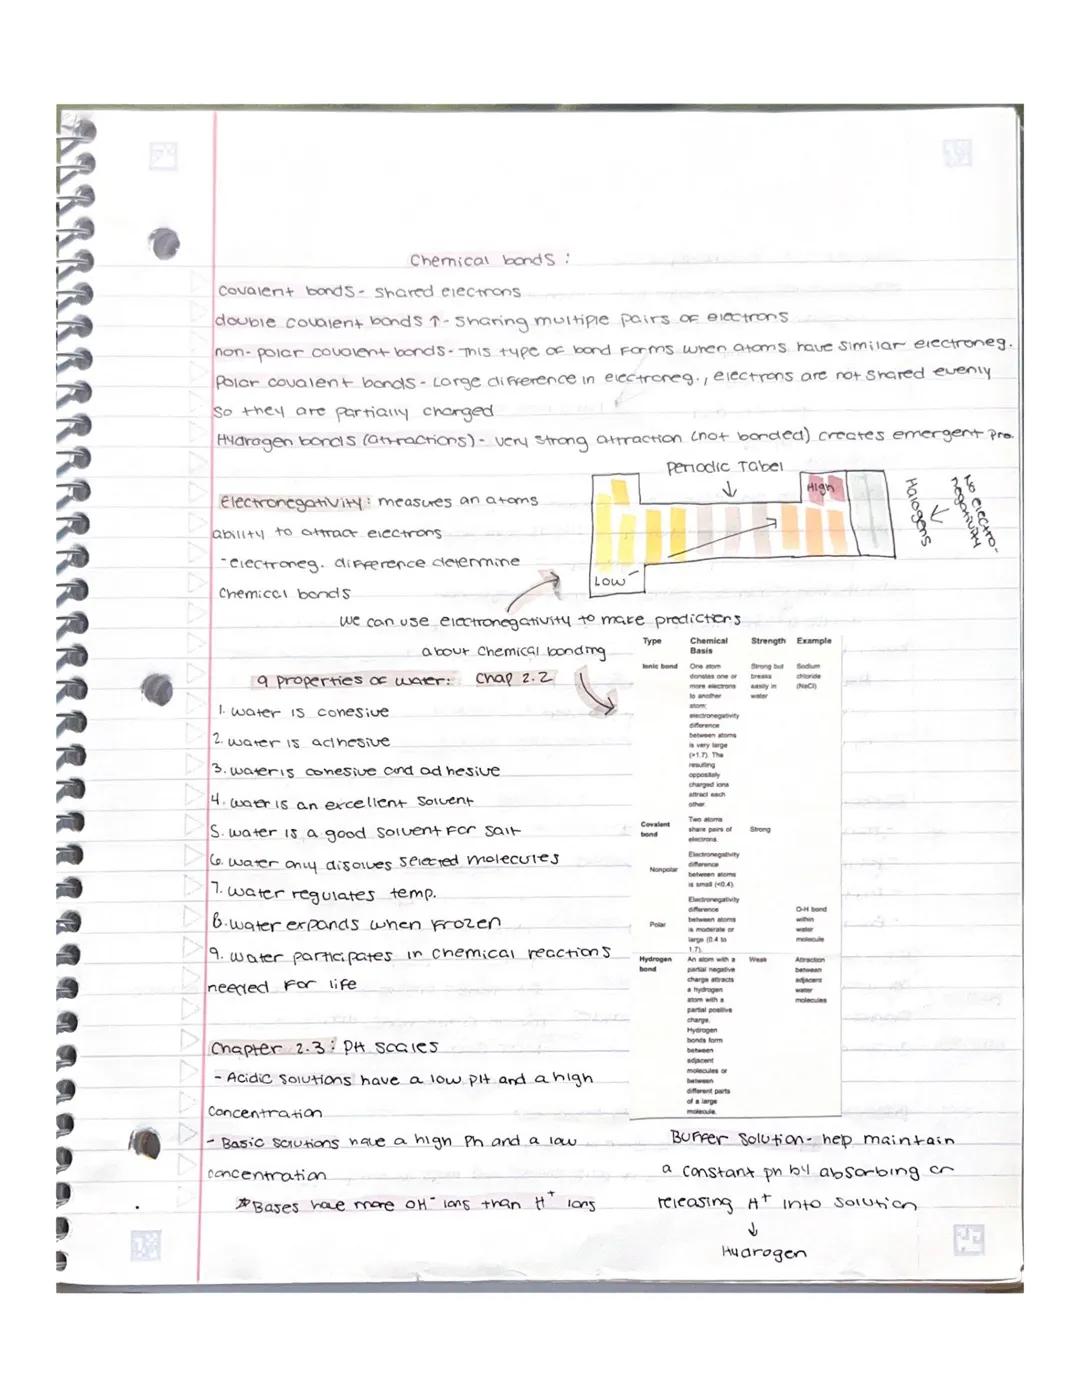 Chemical bonds :
Covalent bonds - shared electrons
double covalent bonds ↑ - Sharing multiple pairs of electrons
non-polar covalent bonds - This type of bond forms when atoms have similar electroneg.
Polar covalent bonds - Large difference in electroneg., electrons are not shared evenly
so they are partially charged
Hydrogen bonds (attractions) - very strong attraction (not bonded) creates emergent pro.
Periodic Tabel
High
Low
Halogens
No electro-
negativity
Electronegativity: measures an atoms
ability to attract electrons
- electroneg. difference determine
Chemical bonds
we can use electronegativity to make predictions
about chemical bonding
9 properties of water: Chap 2.2
1. water is cohesive
2. water is adhesive
3. water is cohesive and adhesive
4. water is an excellent solvent
5. water is a good solvent for salt
6. water only disolves selected molecules
7. water regulates temp.
8. water expands when frozen
9. water participates in chemical reactions
needed for life
Type Chemical Strength Example
Basis
Ionic bond One atom Strong but Sodium
donates one or breaks chloride
more electrons easily in (NaCl)
to another water
atom;
electronegativity
difference
between atoms
is very large
(>1.7). The
resulting
oppositely
charged ions
attract each
other.
Covalent Two atoms
bond share pairs of Strong
electrons.
Nonpolar Electronegativity
difference
between atoms
is small (<0.4).
Polar Electronegativity
difference O-H bond
between atoms within
is moderate or water
large (0.4 to molecule
1.7).
Hydrogen An atom with a Weak Attraction
bond partial negative between
charge attracts adjacent
a hydrogen water
atom with a molecules
partial positive
charge.
Hydrogen
bonds form
between
adjacent
molecules or
between
different parts
of a large
molecule.
Chapter 2.3: PH scales
- Acidic solutions have a low pH and a high
concentration
- Basic solutions have a high Ph and a low
concentration
* Bases have more OH⁻ ions than H⁺ ions
Buffer solution - help maintain
a constant ph by absorbing or
releasing H⁺ into solution
↓
Hydrogen